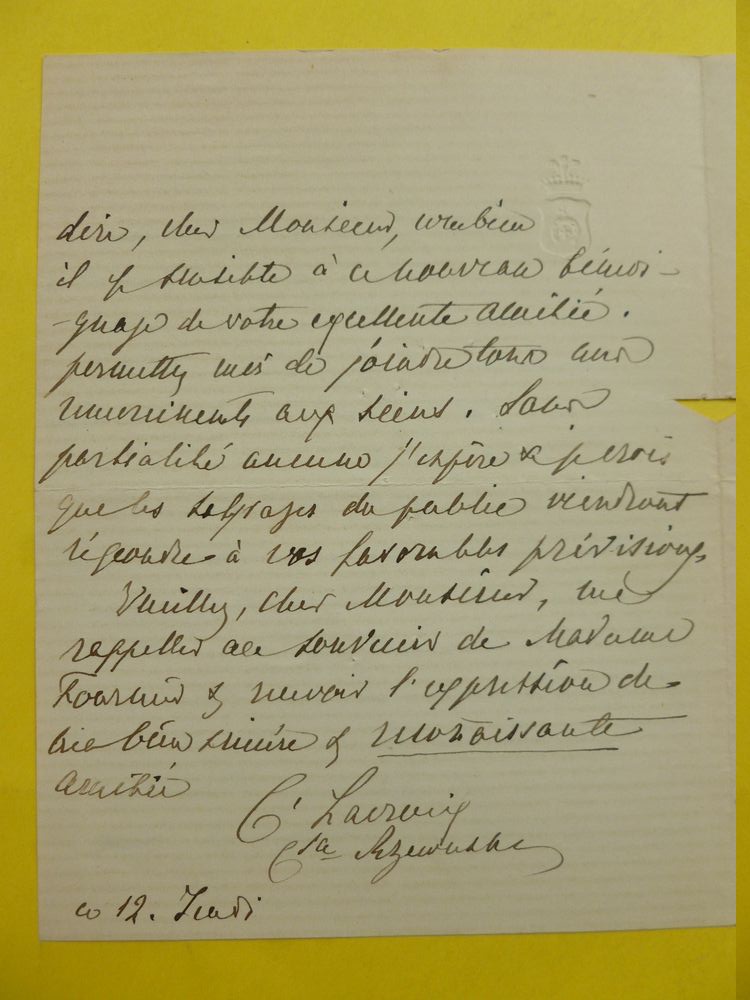 dire, cher Monsieur, combien
il est sensible à ce nouveau témoi-
-gnage de votre excellente amitié.
permettez moi de joindre tous mes
remerciments aux siens. Sans
partialité aucune j'espère & je crois
que les suffrages du public viendront
répondre à vos favorables prévisions.
Veuillez, cher Monsieur, me
rappeller au souvenir de Madame
Fournier & recevoir l'expression de
ma bien sincère & reconnaissante
amitié
Csse Rzewuska
ce 12. Jeudi